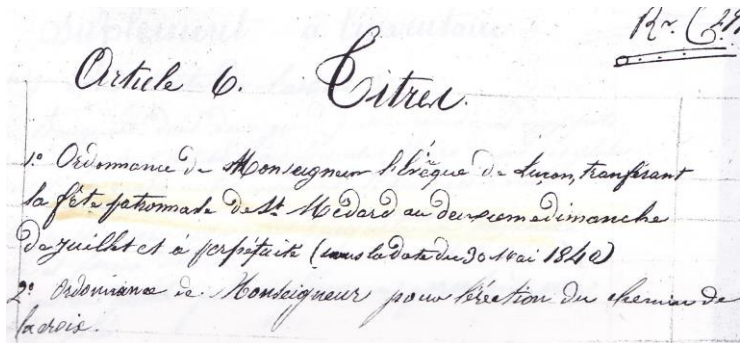 Article 6. Titres.
1º Ordonnance de Monseigneur l'évêque de Luçon, tranférant
la fête patronnale de St Médard au deuxième dimanche
de juillet et à perpétuité (sous la date du 30 Mai 1840)
2º Ordonnance de Monseigneur pour l'érection du chemin de
la croix.